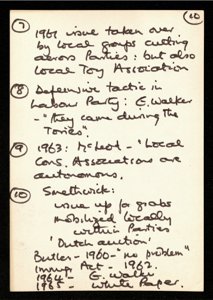 (10)
(7) 1961 issue taken over
by local groups cutting
across Parties: but also
Local Tory Association
(8) Defensive tactic in
Labour Party: G. Walker
- "they came during the
Tories".
(9) 1963: McLeod - 'Local
Cons. Associations are
autonomous.
(10) Smethwick:
issue up for grabs
mobilized locally
within Parties
'Dutch auction'
Butler - 1960 - "no problem"
Immig. Act - 1962.
1964 - G. Walker
1965 - White Paper.